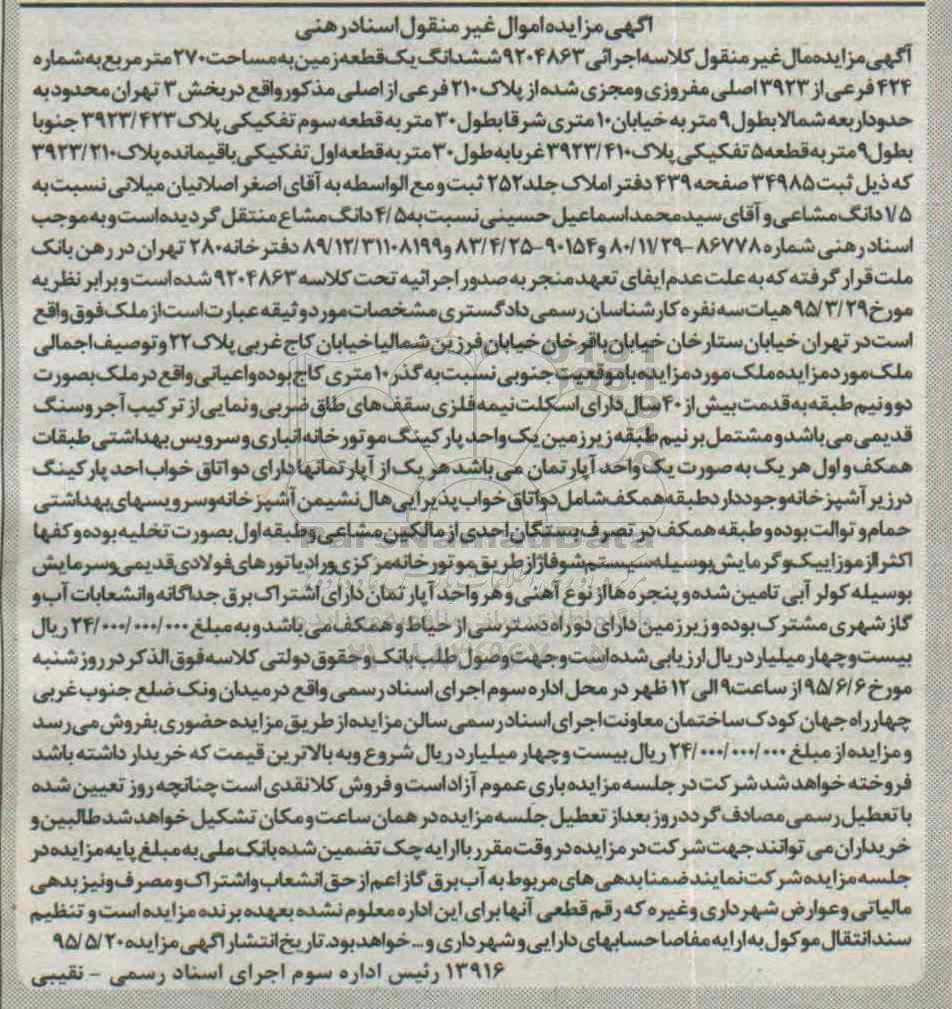 آگهی مزایده اموال غیر منقول اسناد رهنی
آگهی مزایده مال غیر منقول کلاسه اجرائی ۹۲۰۴۸۶۳ ششدانگ یک قطعه زمین به مساحت ۲۷۰ متر مربع به شماره
۴۲۴ فرعی از ۳۹۲۳ اصلی مفروزی و مجزی شده از پلاک ۲۱۰ فرعی از اصلی مذکور واقع در بخش ۳ تهران محدود به
حدود اربعه شمالا بطول ۹ متر به خیابان ۱۰ متری شرقا بطول ۳۰ متر به قطعه سوم تفکیکی پلاک ۳۹۲۳/۴۲۳ جنوبا
بطول ۹ متر به قطعه ۵ تفکیکی پلاک ۳۹۲۳/۴۱۰ غربا به طول ۳۰ متر به قطعه اول تفکیکی باقیمانده پلاک ۳۹۲۳/۲۱۰
که ذیل ثبت ۳۴۹۸۵ صفحه ۴۳۹ دفتر املاک جلد ۲۵۲ ثبت و مع الواسطه به آقای اصغر اصلانیان میلانی نسبت به
۱/۵ دانگ مشاعی و آقای سید محمد اسماعیل حسینی نسبت به ۴/۵ دانگ مشاع منتقل گردیده است و به موجب
اسناد رهنی شماره ۸۶۷۷۸-۸۰/۱۱/۲۹ و ۹۰۱۵۴-۸۳/۴/۲۵ و ۸۹/۱۲/۳۱۱۰۸۱۹۹ دفترخانه ۲۸۰ تهران در رهن بانک
ملت قرار گرفته که به علت عدم ایفای تعهد منجر به صدور اجرائیه تحت کلاسه ۹۲۰۴۸۶۳ شده است و برابر نظریه
مورخ ۹۵/۳/۲۹ هیات سه نفره کارشناسان رسمی دادگستری مشخصات مورد وثیقه عبارت است از ملک فوق واقع
است در تهران خیابان ستارخان خیابان باقرخان خیابان فرزین شمالیا خیابان کاج غربی پلاک ۲۲ و توصیف اجمالی
ملک مورد مزایده ملک مورد مزایده با موقعیت جنوبی نسبت به گذر ۱۰ متری کاج بوده و اعیانی واقع در ملک بصورت
دو و نیم طبقه به قدمت بیش از ۴۰ سال دارای اسکلت نیمه فلزی سقف های طاق ضربی و نمایی از ترکیب آجر و سنگ
قدیمی می باشد و مشتمل بر نیم طبقه زیرزمین یک واحد پارکینگ موتورخانه انباری و سرویس بهداشتی طبقات
همکف و اول هر یک به صورت یک واحد آپارتمان می باشد هر یک از آپارتمانها دارای دو اتاق خواب احد پارکینگ
در زیر آشپزخانه وجود دارد طبقه همکف شامل دو اتاق خواب پذیرایی هال نشیمن آشپزخانه و سرویسهای بهداشتی
حمام و توالت بوده و طبقه همکف در تصرف بستگان احدی از مالکین مشاعی و طبقه اول بصورت تخلیه بوده و کفها
اکثر از موزاییک و گرمایش بوسیله سیستم شوفاژ از طریق موتورخانه مرکزی و رادیاتورهای فولادی قدیمی و سرمایش
بوسیله کولر آبی تامین شده و پنجره ها از نوع آهنی و هر واحد آپارتمان دارای اشتراک برق جداگانه و انشعابات آب و
گاز شهری مشترک بوده و زیرزمین دارای دو راه دسترسی از حیاط و همکف می باشد و به مبلغ ۲۴/۰۰۰/۰۰۰/۰۰۰ ریال
بیست و چهار میلیارد ریال ارزیابی شده است و جهت وصول طلب بانک و حقوق دولتی کلاسه فوق الذکر در روز شنبه
مورخ ۹۵/۶/۶ از ساعت ۹ الی ۱۲ ظهر در محل اداره سوم اجرای اسناد رسمی واقع در میدان ونک ضلع جنوب غربی
چهارراه جهان کودک ساختمان معاونت اجرای اسناد رسمی سالن مزایده از طریق مزایده حضوری بفروش می رسد
و مزایده از مبلغ ۲۴/۰۰۰/۰۰۰/۰۰۰ ریال بیست و چهار میلیارد ریال شروع و به بالاترین قیمت که خریدار داشته باشد
فروخته خواهد شد شرکت در جلسه مزایده باری عموم آزاد است و فروش کلا نقدی است چنانچه روز تعیین شده
با تعطیل رسمی مصادف گردد روز بعد از تعطیل جلسه مزایده در همان ساعت و مکان تشکیل خواهد شد طالبین و
خریداران می توانند جهت شرکت در مزایده در وقت مقرر با ارایه چک تضمین شده بانک ملی به مبلغ پایه مزایده در
جلسه مزایده شرکت نمایند ضمنا بدهی های مربوط به آب برق گاز اعم از حق انشعاب و اشتراک و مصرف و نیز بدهی
مالیاتی و عوارض شهرداری و غیره که رقم قطعی آنها برای این اداره معلوم نشده بعهده برنده مزایده است و تنظیم
سند انتقال موکول به ارایه مفاصا حسابهای دارایی و شهرداری و... خواهد بود. تاریخ انتشار آگهی مزایده ۹۵/۵/۲۰
۱۳۹۱۶ رئیس اداره سوم اجرای اسناد رسمی - نقیبی